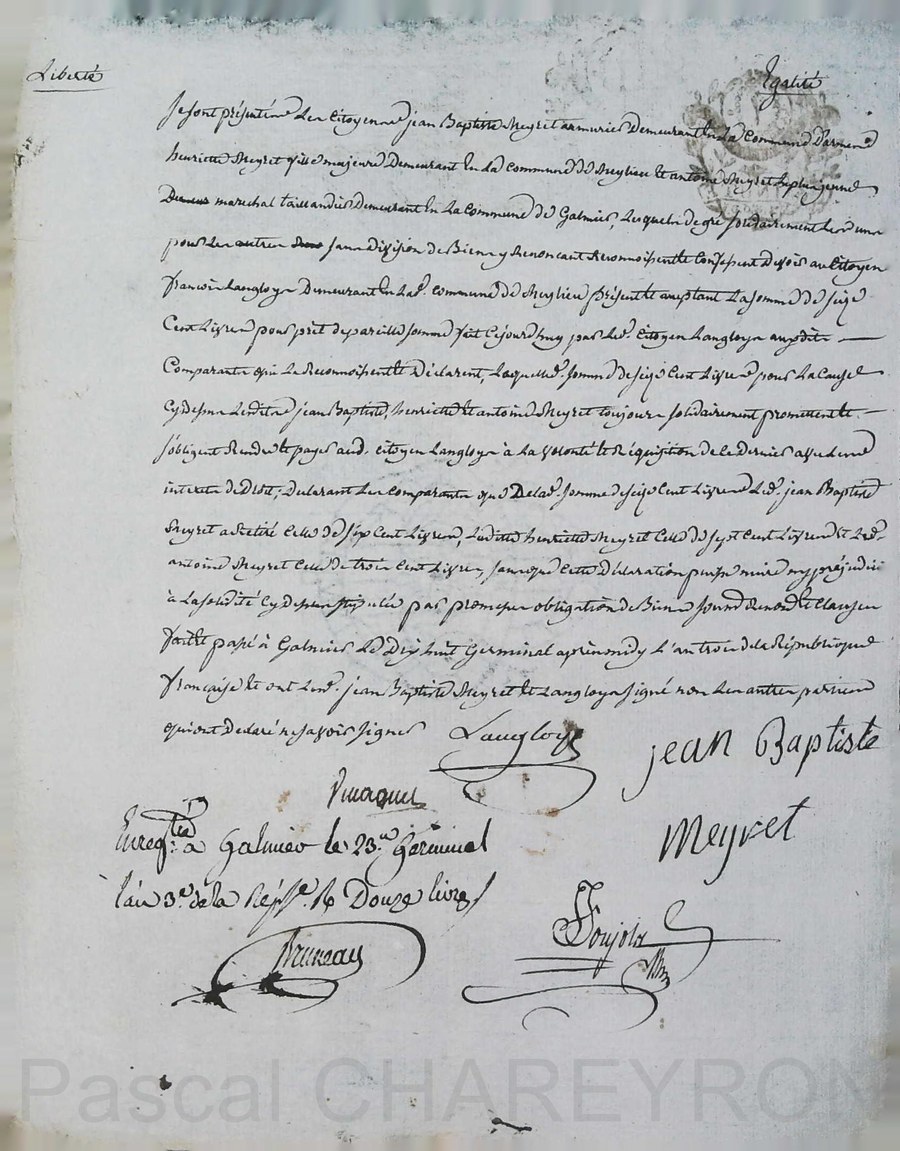 Liberté
Egalité
Se sont présentés Les Citoyens jean Baptiste Meyret armurier Demeurant En La Commune D'armes
henriette Meyret fille majeure Demeurant En La Commune de Meylieu Et antoine Meyret Leplus jeune
marechal taillandier Demeurant En La Commune de Galmier, Lesquels de gré solidairement Les uns
pour Les autres sans Division de Biens y Renoncant Reconnoissent Et Confessent Devoir au Citoyen
francois Langloys Demeurant En Lad. commune de Meylieu présent Et aceptant La somme de seize
Cent Livres pour prêt de pareille somme fait Cejourd'huy par Led. Citoyen Langloys auxdits
Comparants qui Le Reconnoissent Et Déclarent, Laquelle somme de seize Cent Livres pour La Cause
Cy dessus Lesdits jean Baptiste, henriette Et antoine Meyret toujours solidairement promettent Et
s'obligent Rendre Et payer aud. Citoyen Langloys à La volonté Et Réquisition de ce Dernier avec
interets de Droit, Declarant Les Comparants que De Lad. somme de seize Cent Livres Led. jean Baptiste
Meyret a Retiré Celle de six Cent Livres, Ladite henriette Meyret Celle de sept Cent Livres Et Led.
antoine Meyret Celle de trois Cent Livres, sans que Cette Déclaration puisse nuire ny préjudicier
à La solidité Cy Dessus stipulée par promesses obligation de Biens Et Clauses
fait Et passé à Galmier Le Dix huit Germinal après midy L'an trois de la République
française Et ont Lesd. jean Baptiste Meyret Et Langloys signé non Les autres parties
qui ont Declaré ne savoir signer
Langloys
jean Baptiste
Meyret
Enreg.tré à Galmier le 23.e Germinal
l'an 3.e de la Rép.e R Douze livres
Bruneau
Pascal CHAREYRON